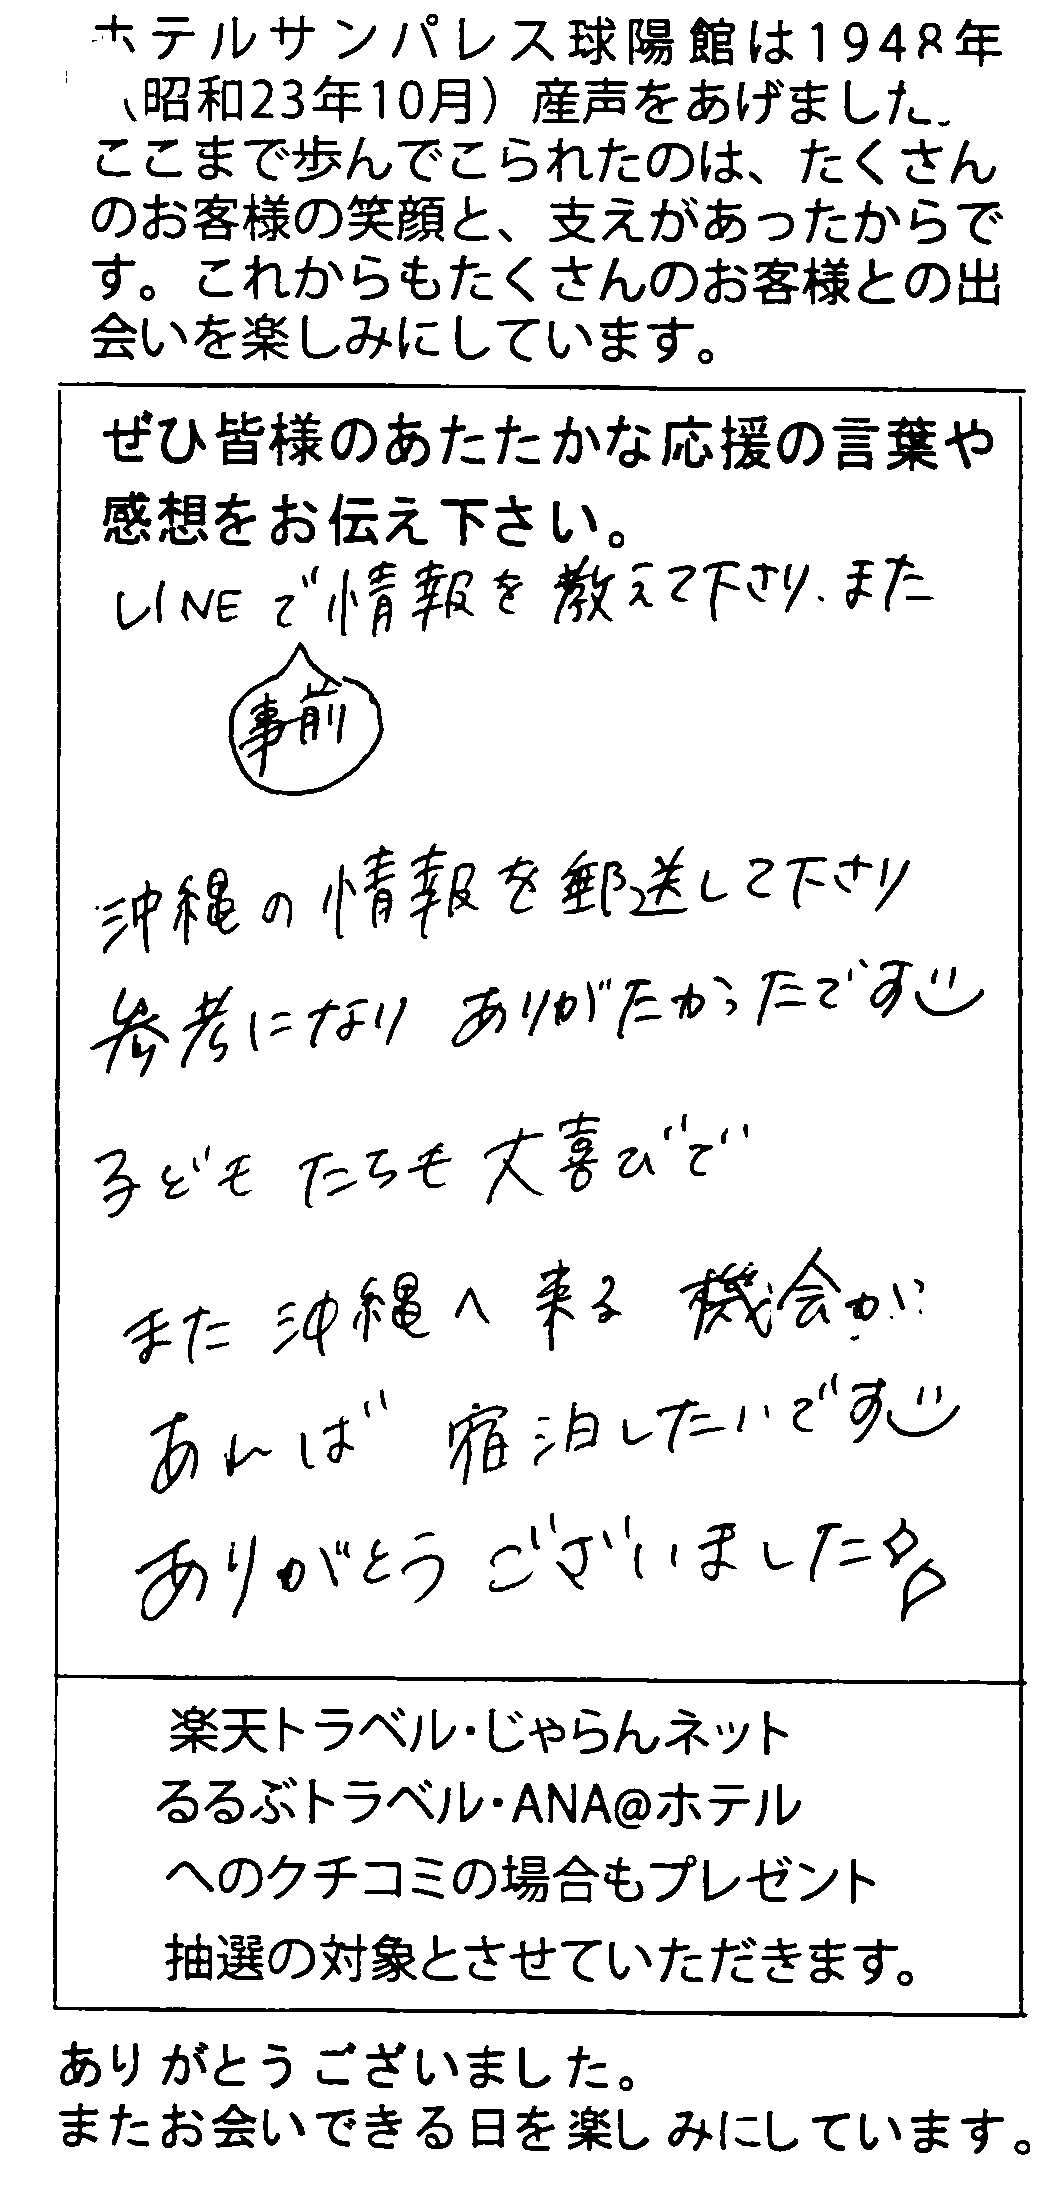 ホテルサンパレス球陽館は1948年
（昭和23年10月）産声をあげました。
ここまで歩んでこられたのは、たくさん
のお客様の笑顔と、支えがあったからで
す。これからもたくさんのお客様との出
会いを楽しみにしています。
ぜひ皆様のあたたかな応援の言葉や
感想をお伝え下さい。
LINEで情報を教えて下さり、また
事前
沖縄の情報を郵送して下さり
参考になり ありがたかったです
子どもたちも大喜びで
また沖縄へ来る機会が
あれば 宿泊したいです
ありがとうございました
楽天トラベル・じゃらんネット
るるぶトラベル・ANA@ホテル
へのクチコミの場合もプレゼント
抽選の対象とさせていただきます。
ありがとうございました。
またお会いできる日を楽しみにしています。